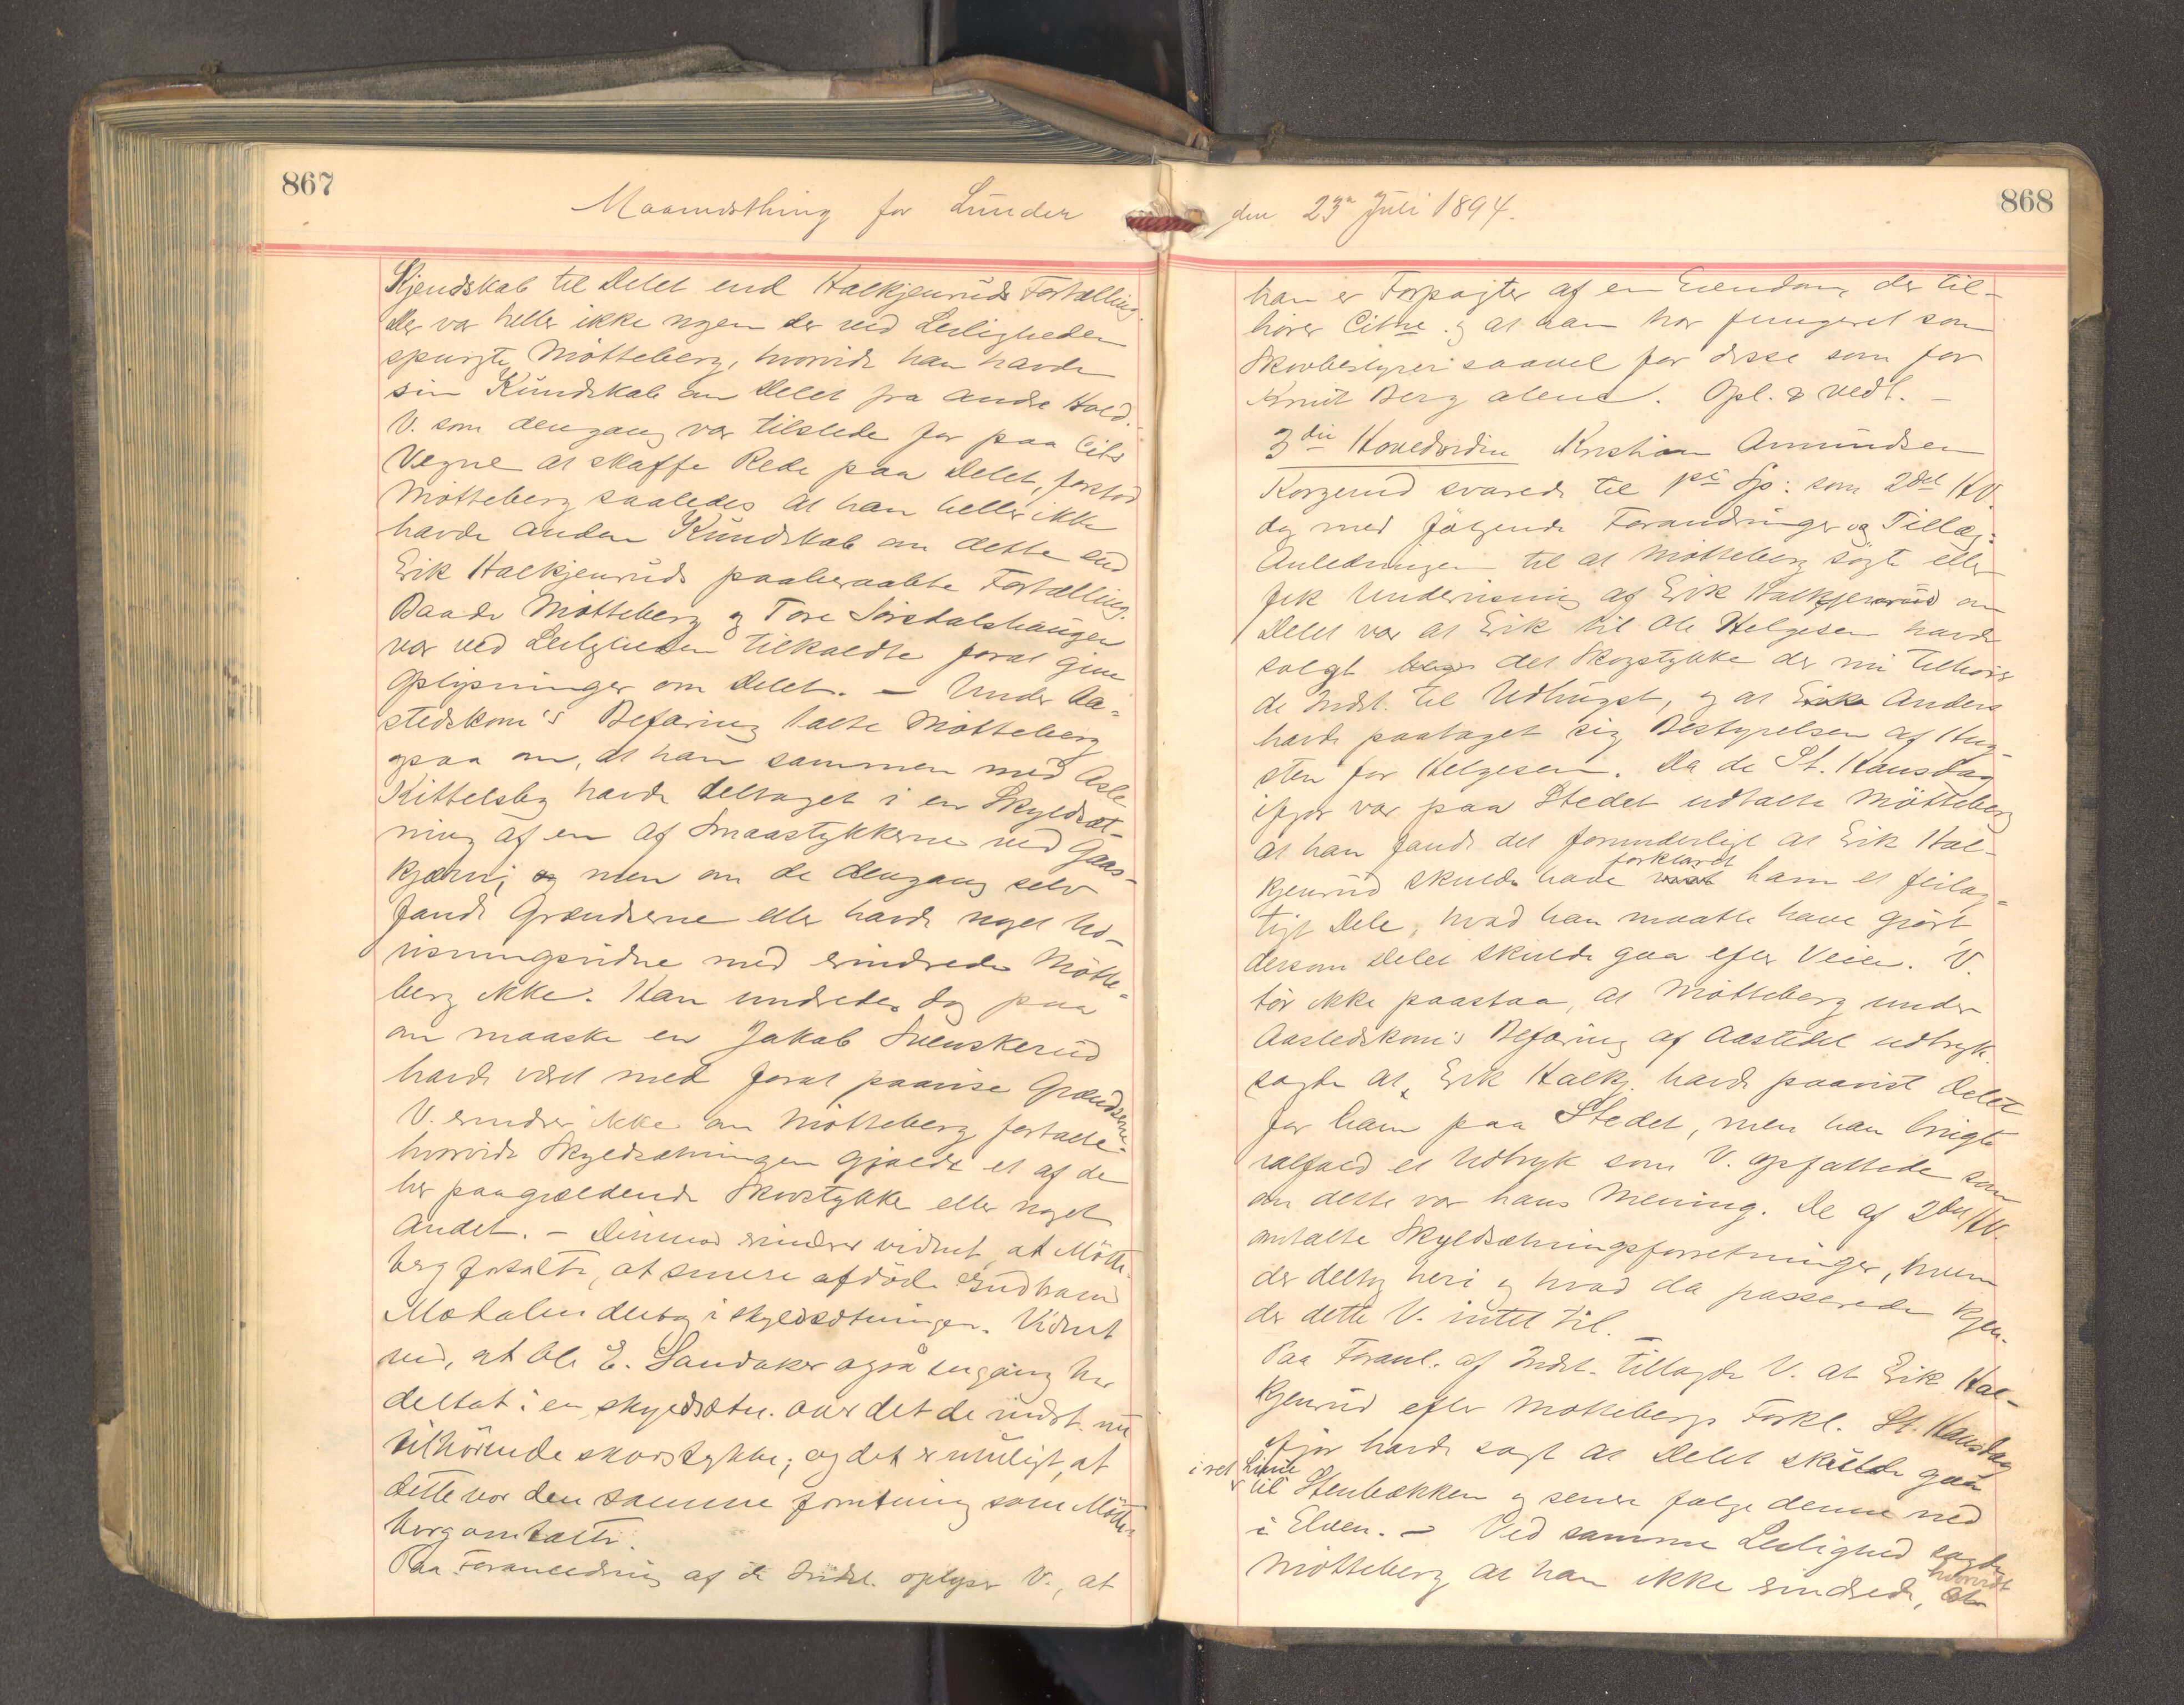 867
Maanedsthing for Lunder
Kjendskab til Delet end Halkjenruds Fortælling.
Der var heller ikke nogen der ved Leiligheden
spurgte Mötteberg, hvorvidt han havde
sin Kundskab om Delet fra andre Hold.
V. som dengang var tilstede for paa Cits
Vegne at skaffe Rede paa Delet, forstod
Mötteberg saaledes at han heller ikke
havde anden Kundskab om dette end
Erik Halkjenruds paaberaabte Fortælling.
Baade Mötteberg og Tore Sørsdalshaugen
var ved Leiligheden tilkaldte forat give
Oplysninger om Delet. – Under Aa-
stedskom's Befaring talte Mötteberg
ogsaa om, at han sammen med Asle
Kittelsby havde deltaget i en Skyldsæt-
ning af en af Smaastykkerne ved Gaas-
kjærn; og men om de dengang selv
fandt Grændserne eller havde noget Ud-
visningsvidne med erindrede Mötte-
berg ikke. Han undredes dog paa
om maaske en Jakob Svenskerud
havde været med forat paavise Grændserne.
V. erindrer ikke om Mötteberg fortalte
hvorvidt Skyldsætningen gjaldt et af de
her paagjældende Skovstykke eller noget
Andet. – Derimod erindrer vidnet, at Mötte-
berg fortalte, at senere afdöde Gudbrand
Modalen deltog i skyldsætningen. Vidnet
ved, at Ole E. Sandaker også engang har
deltat i en skyldsætn. over det de indst. nu
tilhörende skovstykke; og det er muligt, at
dette var den samme forretning som Mötte-
berg omtalte.
Paa Foranledning af de Indst. oplyser V., at
868
den 23de Juli 1894.
han er Forpagter af en Eiendom, der til-
hører Citne. og at han har fungeret som
Skovbestyrer saavel for disse som for
Knut Berg alene. Opl. & vedt. –
3die Hovedvidne Kristian Amundsen
Korgerud svarede til 1ste Sp: som 2det HV.
dog med følgende Forandringer og Tillæg:
Anledningen til at Mötteberg søgte eller
fik Undervisning af Erik Halkjenrud om
Delet var at Erik til Ole Helgesen havde
solgt det Skogstykke der nu tilhører
de Indst. til Udhugst, og at Erik Anders
havde paataget sig Bestyrelsen af Hug-
sten for Helgesen. Da de St. Hansdag
ifjor var paa Stedet udtalte Mötteberg
at han fandt det forunderligt at Erik Hal-
kjenrud skulde have vist forklaret ham et feilag-
tigt Dele, hvad han maatte have gjort,
dersom Delet skulde gaa efter Veien. V.
tør ikke paastaa, at Mötteberg under
Aastedskom's Befaring af Aastedet udtryk.
sagde at Erik Halkj. havde paavist Delet
for ham paa Stedet, men han brugte
ialfald et Udtryk som V. opfattede som
om dette var hans Mening. De af 2det HV.
omtalte Skyldsætningsforretninger, hvem
der deltog heri og hvad da passerede kjen-
der dette V. intet til. –
Paa Foranl. af Indst. tillagde V. at Erik Hal-
kjenrud efter Mottebergs Forkl. St. Hansdag
ifjor havde sagt at Delet skulde gaa
i ret Linie
til Stenbækken og senere følge denne ned
i Elven. – Ved samme Leilighed sagde
Mötteberg at han ikke erindrede, at hvorvidt